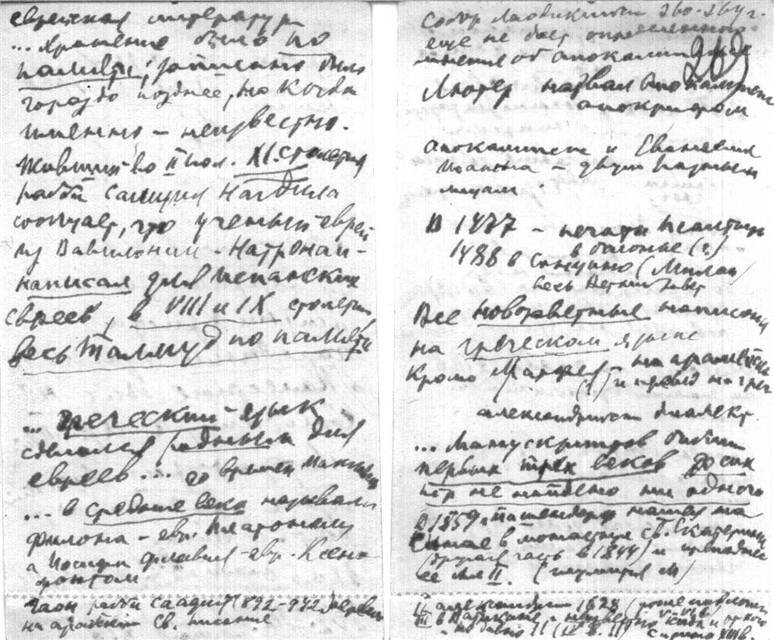 еврейская литература
... Хранение было по
памяти; записано было
гораздо позднее, но когда
именно – неизвестно.
Живший во II пол. XI. столетия
рабби Самуил Нагдила
сообщает, что ученый еврей
из Вавилонии – Натронаи –
написал для испанских
евреев, в VIII и IX столетии,
весь Талмуд по памяти
... греческий язык
сделался родным для
евреев... со времен
... в средние века называли
Филона – евр. Платоном,
а Иосифа Флавия – евр. Ксено
фонтом
Гаон рабби Саадия (892–942) перевел
на арабский Св. писание
Собор Лаодикийский 360-364 г.
еще не дает определенного
мнения об апокалипсисе
Лютер назвал Апокалипсис
апокрифом
апокалипсис и Евангелие
Иоанна – двум разным
лицам.
В 1477 – печати Псалтирь
в Болонье
1488 в Сончино (Милан)
весь Ветхий завет
Все новозаветные написаны
на греческом языке
Кроме Матфея – на арамейском
(?) и перевод на греч
александрийский диалект.
... Манускриптов библии
первых трех веков до сих
пор не найдено ни одного
В 1859 г. Тишендорф нашел на
Синае в монастыре св. Екатерины
(другая часть в 1844) и
II
II александрийский 1628
III в Ватикане